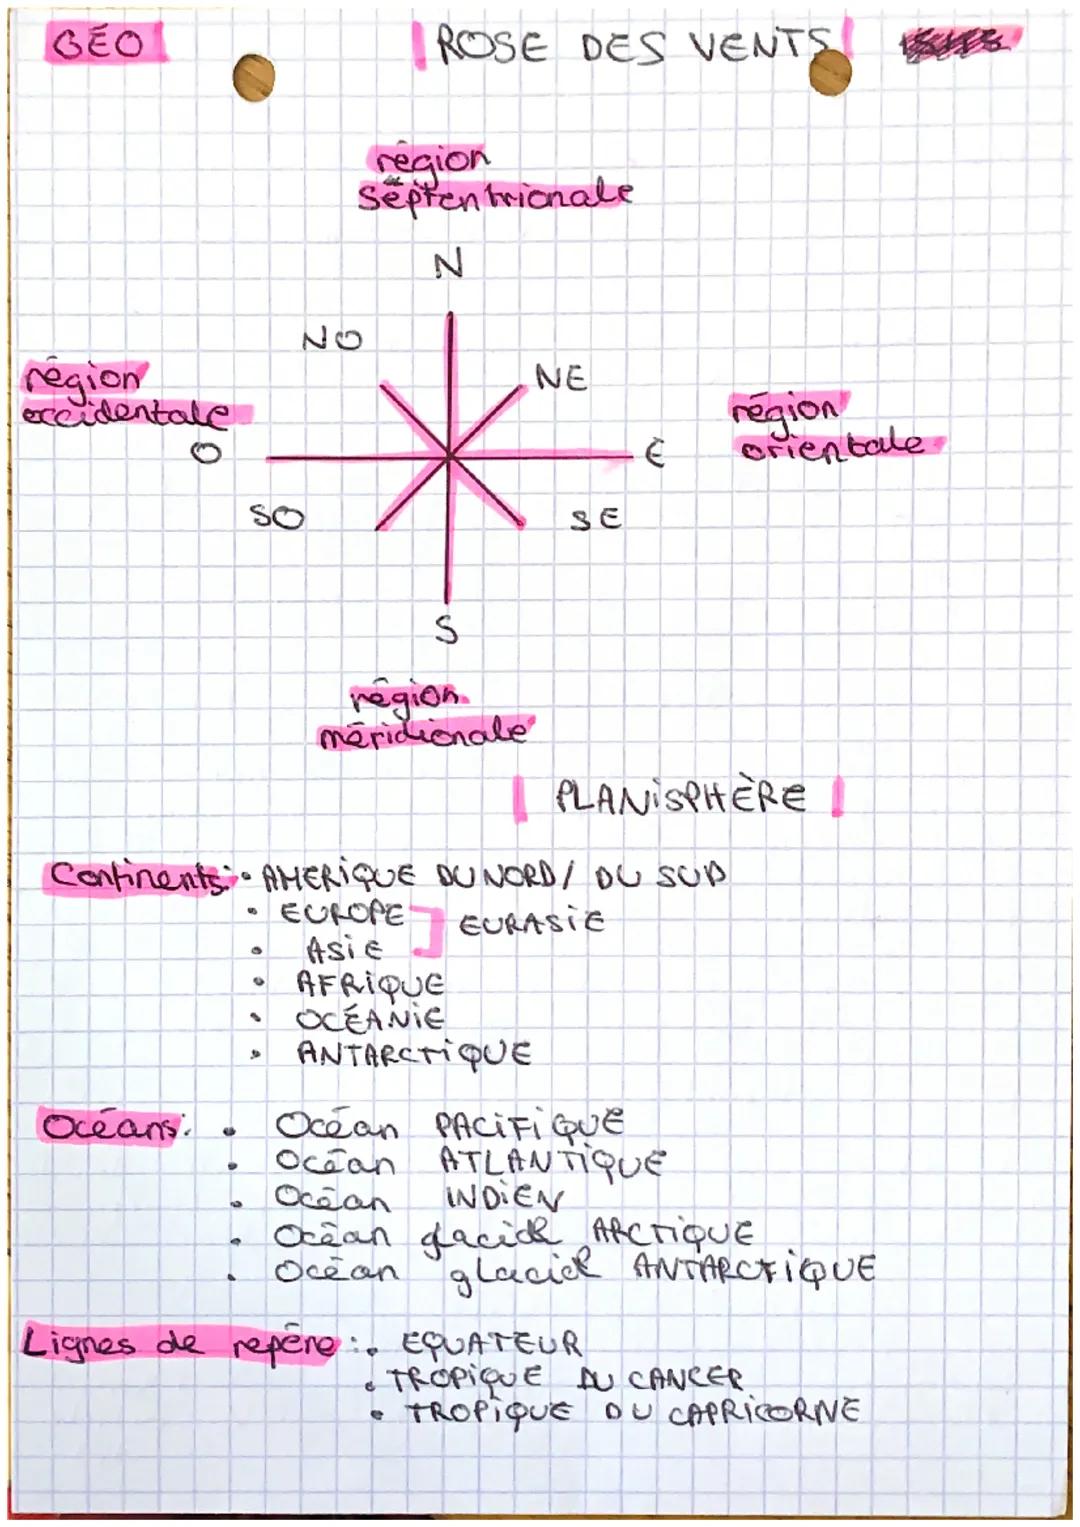 GÉO
ROSE DES VENTS
région
Septentrionale
N
NO
NE
région
occidentale
O
E
région
orientale
SO
SE
S
région
méridionale
PLANiSPHÈRE
Continents: • AMERiQUE DU NORD / DU SUD
• EUROPE
EURASiE
• ASiE
• AFRiQUE
• OCÉANiE
• ANTARCTiQUE
Océans: • Océan PACiFiQUE
• Océan ATLANTiQUE
• Océan iNDiEN
• Océan glacial ARCTiQUE
• Océan glacial ANTARCTiQUE
Lignes de repère: • EQUATEUR
• TROPiQUE DU CANCER
• TROPiQUE DU CAPRiCORNE